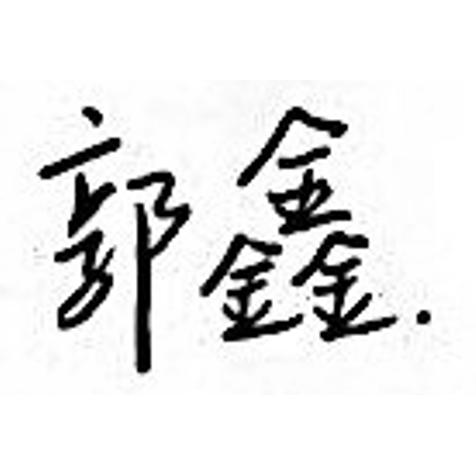 郭鑫.